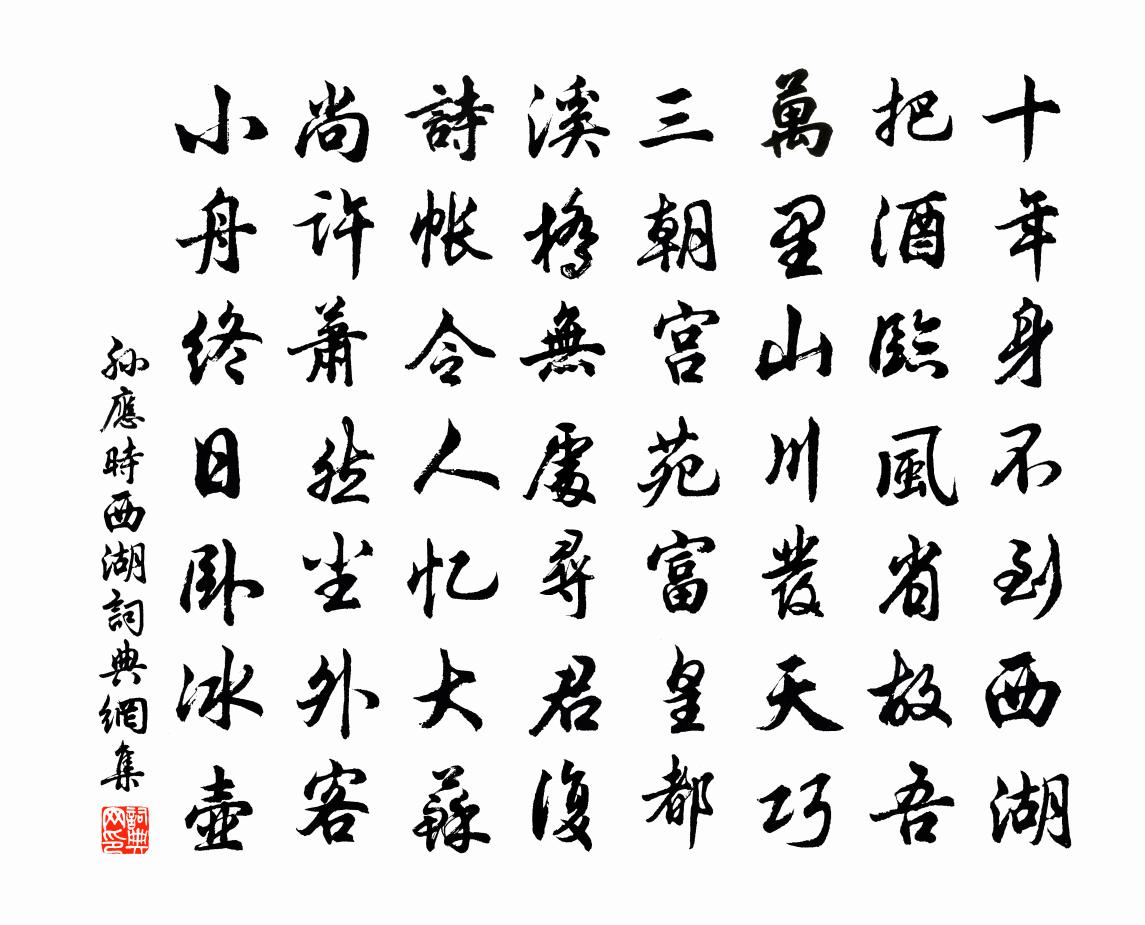 十年身不到西湖
把酒臨風省故吾
萬里山川發天巧
三朝宮苑富皇都
溪橋無處尋君復
詩帳令人忆大蘇
尚許蕭然塵外客
小舟終日卧冰壺
孫應時西湖詞典網集
詞典網印